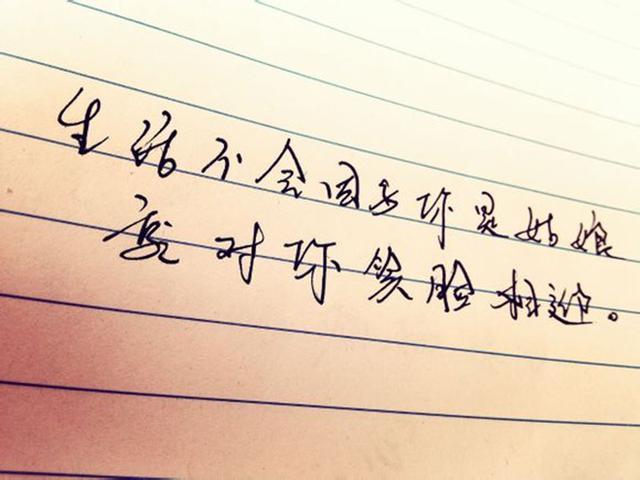 生活不会因为你是姑娘
就对你笑脸相迎。